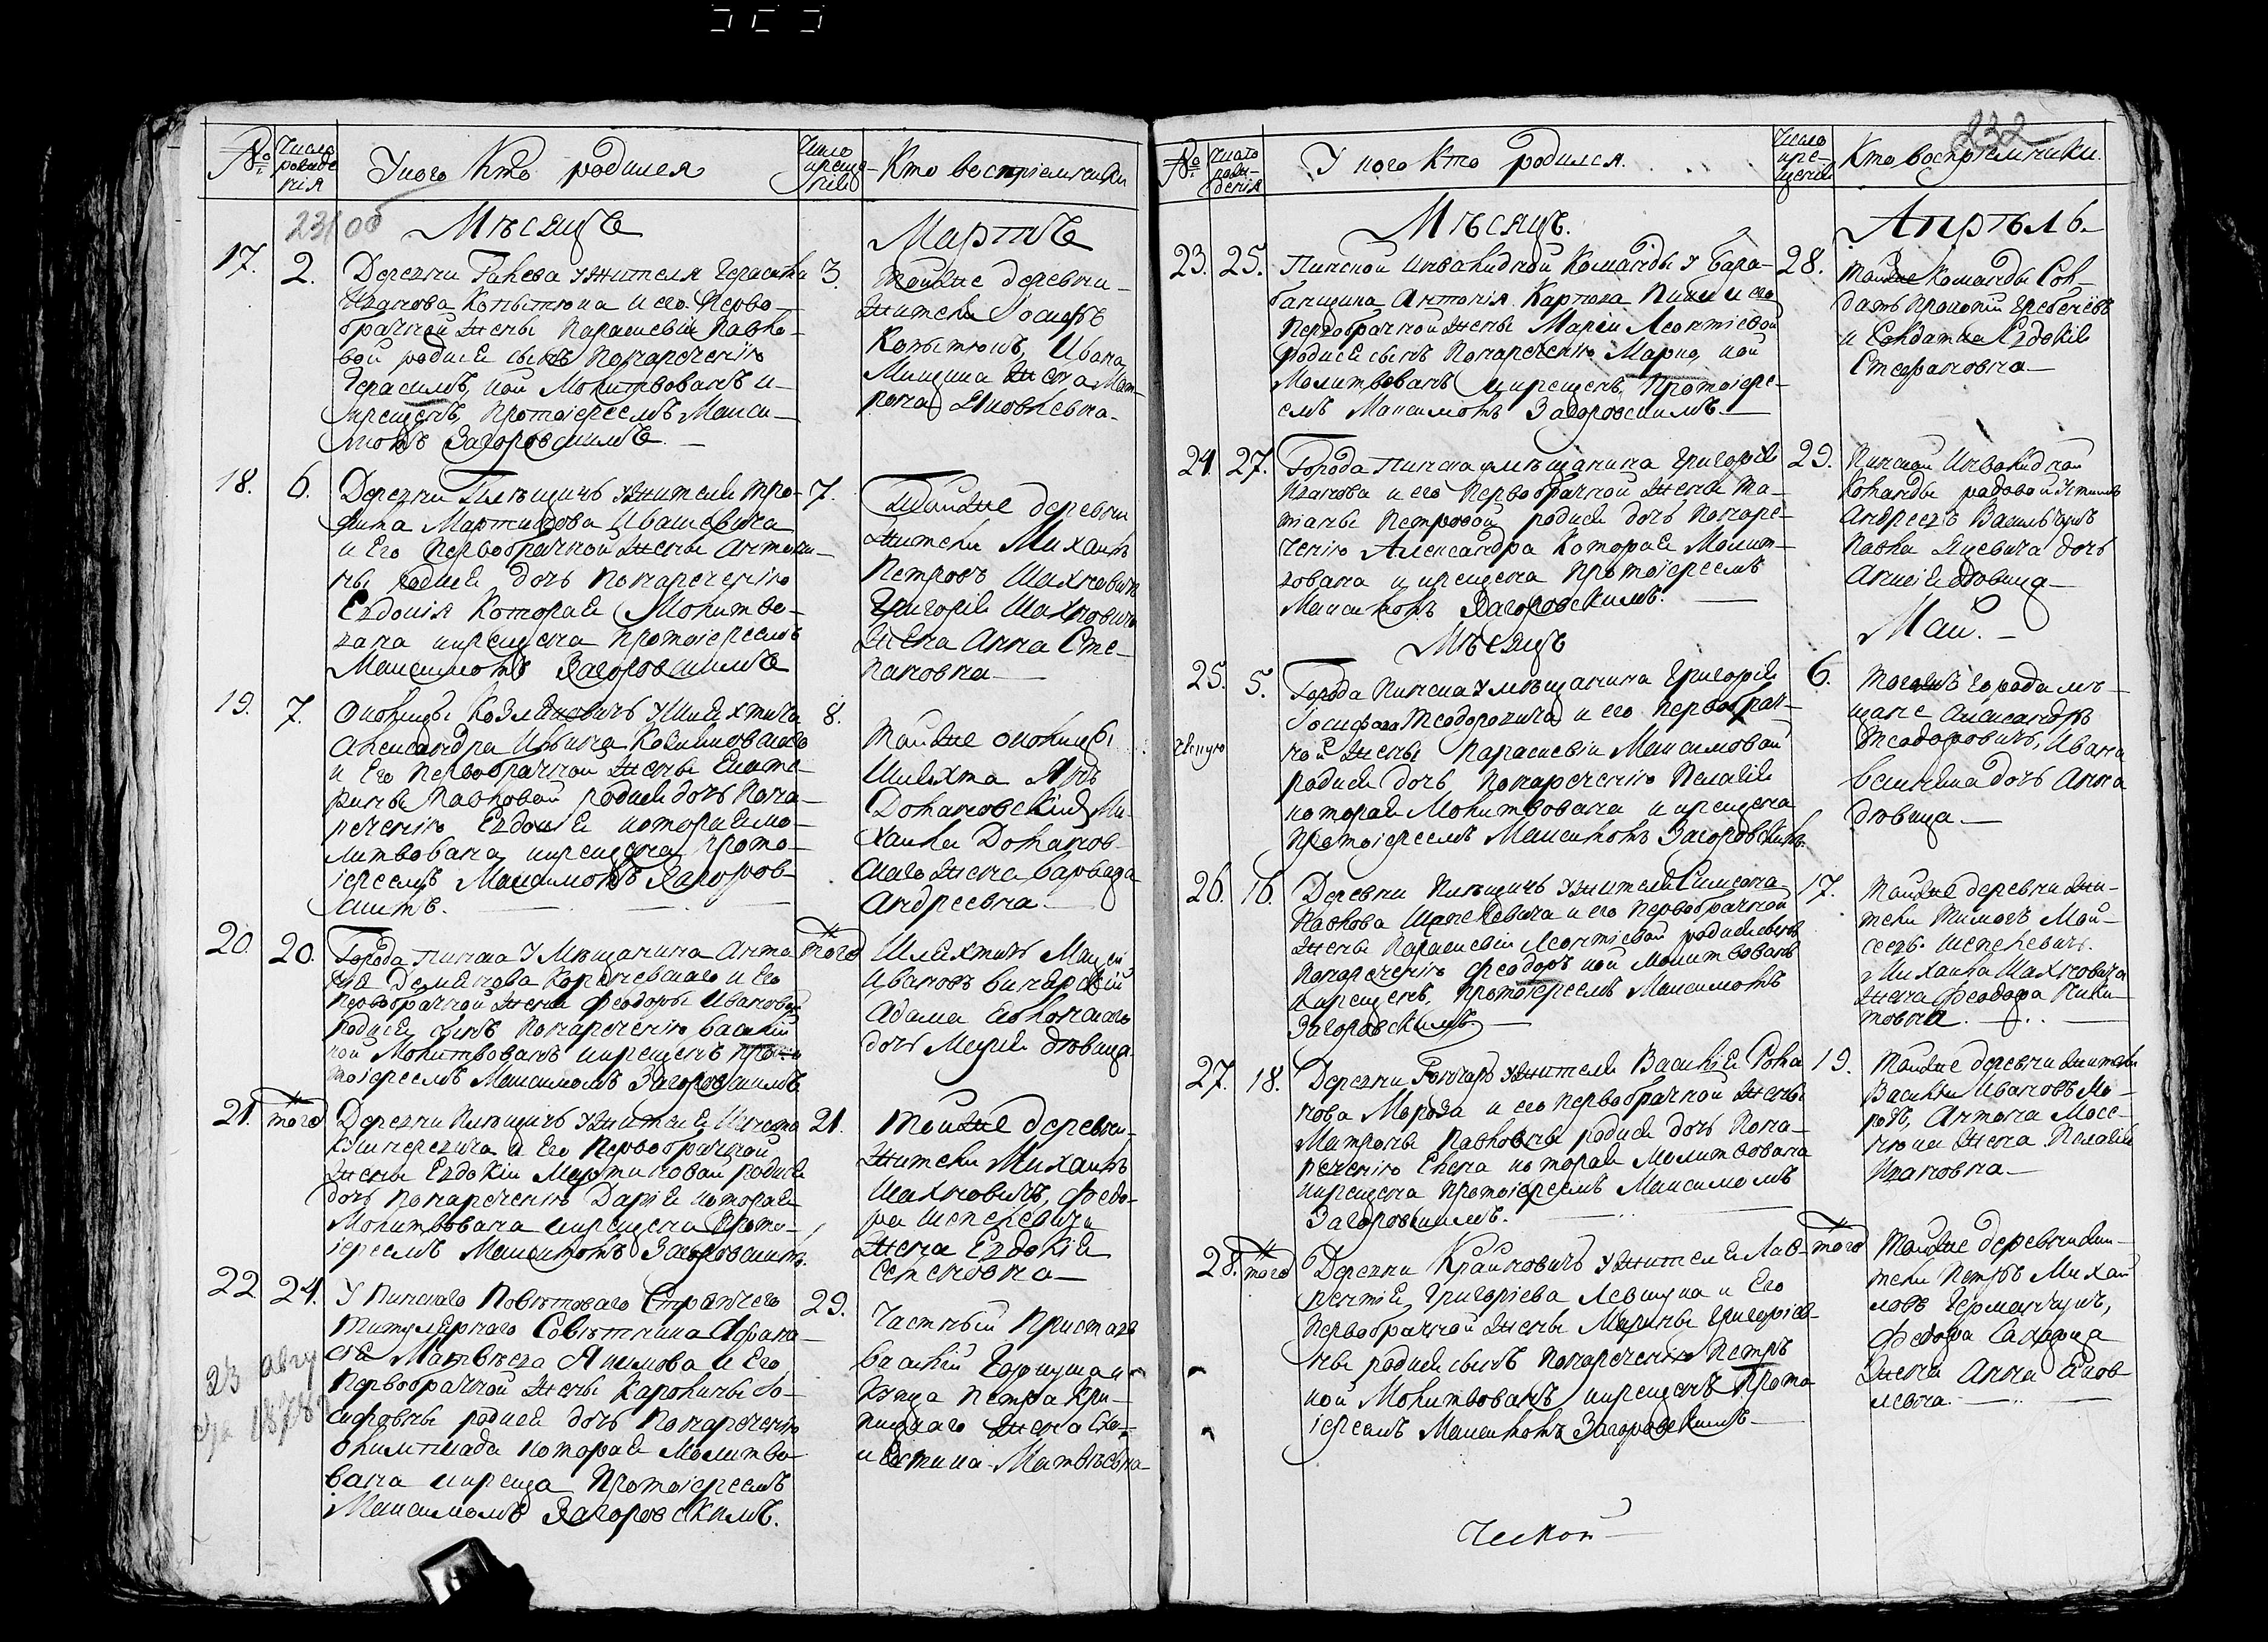 №
Число рожде
нія
У кого Кто родился
Число креще
нія
Кто воспріемники
Мѣсяцъ
Мартъ
17.
2.
Деревни Гакева у жителя Герасима
Иванова Копытюка и его Перво-
брачной Жены Параскевіи Павло-
вой родися сынъ Понареченію
Герасимъ, кой Молитвованъ и
крещенъ, Протоіереемъ Макси-
момъ Загоровскимъ. —
3.
Тойже деревни
Жители Іосифъ
Копытюкъ, Ивана
Мищика Жена Мат-
рона Яковлевна.
18.
6.
Деревни Плещичь у жителя Тро-
фима Мартинова Ивашевича
и Его Первобрачной Жены Антони-
ны родися дочь Понареченію
Евдокія Которая Молитво-
вана и крещена Протоіереемъ
Максимомъ Загоровскимъ
7.
Тойже деревни
Жители Михаилъ
Петровъ Шахновичъ
Григорія Шахновича
Жена Анна Сте-
пановна —
19.
7.
Околицы Козляковичь у Шляхтича
Александра Ильина Козляковскаго
и Его Первобрачной Жены Екате-
рины Павловой родися дочь Пона-
реченію Евдокія которая мо-
литвована и крещена Прото-
іереемъ Максимомъ Загоров-
скимъ.
8.
Тойже околицы
Шляхта Янъ
Домановскій Ми-
хаила Доманов-
скаго жена Варвара
Андреевна.
20.
20.
Города Пинска У Мѣщанина Анто-
нія Демянова Корженевскаго и Его
Первобрачной Жены Феодоры Ивановой
родися сынъ Понареченію Василій
кой Молитвованъ и крещенъ Про-
тоіереемъ Максимомъ Загоровскимъ
того
Шляхтичъ
Ивановъ
Адама
дочь Марія дѣвица.
21.
того
Деревни Плещичь у жителя
и Его Первобрачной
Жены Евдокіи Мартиновой родися
дочь Понареченію Дарія которая
Молитвована и крещена Прото-
іереемъ Максимомъ Загоровскимъ.
21.
Тойже деревни
Жители Михаилъ
Шахновичъ, Федо-
ра Шепелевича
Жена Евдокія
Семеновна —
22
24.
У Пинскаго Повѣтоваго Стряпчего
Титулярнаго Совѣтника Афана-
сія Матвѣева Якимова и Его
Первобрачной Жены Каролины Іо-
сифовны родися дочь Понареченію
Олимпіада которая Молитво-
вана и креща Протоіереемъ
Максимомъ Загоровскимъ.
29.
Частный Приставъ
Василій
Купца Петра
Жена
Матвѣевна
232
№
Число
рож-
денія
У кого Кто родился.
Число
кре-
щенія
Кто воспріемники.
Мѣсяцъ.
Апрѣль
23.
25.
Пинской Инвалидной Команды у бара-
банщика Антонія Карпова и его
Первобрачной Жены Маріи Леонтіевой
родися сынъ Понареченію Марко, кой
Молитвованъ и крещенъ, Протоіере-
емъ Максимомъ Загоровскимъ. —
28.
Тойже Команды Сол-
датъ Прокопій Гребенёвъ
и Солдатка Евдокія
Стефановна —
24.
27.
Города Пинска у мѣщанина Григорія
Иванова и его Первобрачной Жены Та-
тіаны Петровой родися дочь Понаре-
ченію Александра Которая Молит-
вована и крещена Протоіереемъ
Максимомъ Загоровскимъ. —
29.
Пинской Инвалидной
Команды рядовой Устинъ
Андреевъ
Павла Яцевича дочь
Анисія дѣвица —
Мѣсяцъ
Май. —
25.
5.
Города Пинска у мѣщанина Григорія
Іосифова Теодоровича и его первобрач-
ной Жены Параскевіи Максимовой
родися дочь Понареченію Пелагія
которая Молитвована и крещена
Протоіереемъ Максимомъ Загоровскимъ.
6.
Тогожъ города мѣ-
щане Александръ
Теодоровичъ, Ивана
дочь Анна
дѣвица. —
26.
16.
Деревни Плещичь у жителя Симеона
Павлова Шепелевича и его первобрачной
Жены Параскевіи Леонтіевой родися сынъ
Понареченію Феодоръ кой Молитвованъ
и крещенъ, Протоіереемъ Максимомъ
Загоровскимъ —
17.
Тойже деревни Жи-
тели Тимофъ Мой-
сеевъ Шепелевичъ.
Михаила Шахновича
Жена Феодора Ники-
товна.
27.
18.
Деревни Гончаръ у жителя Василія Рома
нова Мороза и его первобрачной Жены
Матроны Павловны родися дочь Пона-
реченію Елена которая Молитвована
и крещена Протоіереемъ Максимомъ
Загоровскимъ.
19.
Тойже деревни Жители
Василій Ивановъ Мо-
розъ, Антона
Жена Пелагія
Ивановна —
28.
того
Деревни Крайновичь у жителя Лав-
рентія Григоріева Левшука и Его
Первобрачной Жены Марины Григоріев-
ны родися сынъ Понареченію Петръ
кой Молитвованъ и крещенъ Прото
іереемъ Максимомъ Загоровскимъ —
того
Тойже деревни Жи-
тели Петръ Михай
ловъ Германчукъ,
Федора
Жена Анна Яков-
левна. —